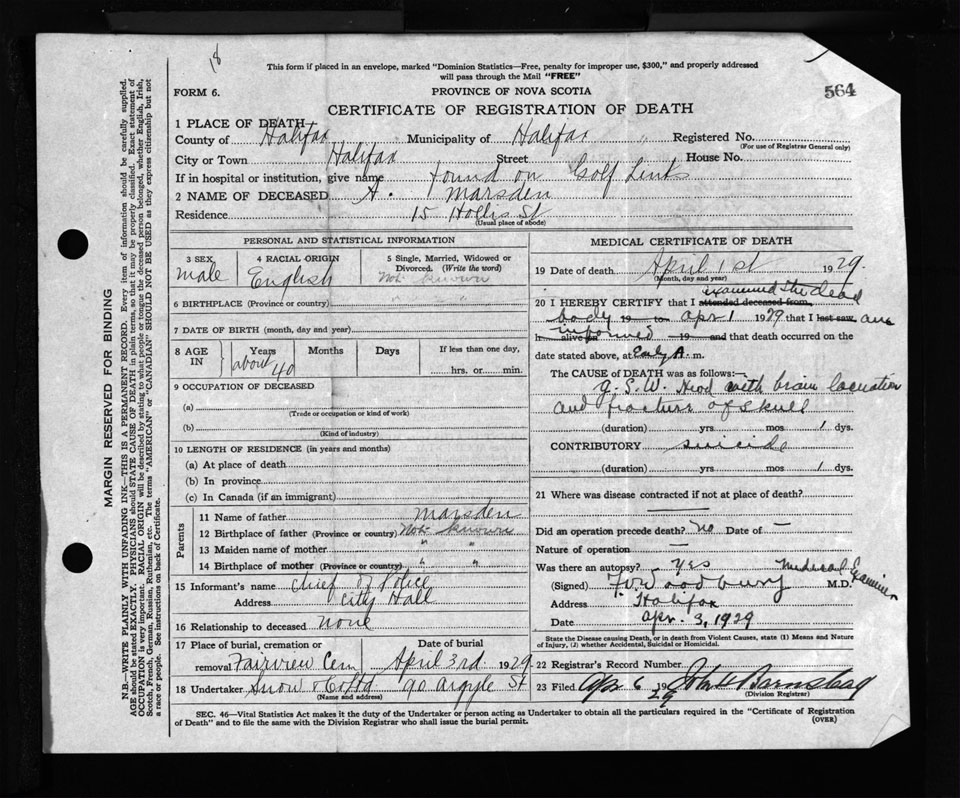 18
This form if placed in an envelope, marked "Dominion Statistics—Free, penalty for improper use, $300," and properly addressed
will pass through the Mail "FREE"
FORM 6.
PROVINCE OF NOVA SCOTIA
564
CERTIFICATE OF REGISTRATION OF DEATH
1 PLACE OF DEATH
County of Halifax Municipality of Halifax Registered No.
(For use of Registrar General only)
City or Town Halifax Street House No.
If in hospital or institution, give name Found on Golf Links
2 NAME OF DECEASED A. Marsden
Residence 15 Hollis St
(Usual place of abode)
PERSONAL AND STATISTICAL INFORMATION
3 SEX 4 RACIAL ORIGIN 5 Single, Married, Widowed or
Divorced. (Write the word)
Male English Not known
6 BIRTHPLACE (Province or country) " "
7 DATE OF BIRTH (month, day and year)
8 AGE IN Years Months Days If less than one day,
about 40 hrs. or min.
9 OCCUPATION OF DECEASED
(a)
(Trade or occupation or kind of work)
(b)
(Kind of industry)
10 LENGTH OF RESIDENCE (in years and months)
(a) At place of death
(b) In province
(c) In Canada (if an immigrant)
Parents
11 Name of father Marsden
12 Birthplace of father (Province or country) Not known
13 Maiden name of mother " "
14 Birthplace of mother (Province or country) " "
15 Informant's name Chief of Police
Address City Hall
16 Relationship to deceased none
17 Place of burial, cremation or Date of burial
removal Fairview Cem April 3rd 1929
18 Undertaker Snow & Co Ltd 90 Argyle St
(Name and address)
MEDICAL CERTIFICATE OF DEATH
19 Date of death April 1st 1929.
(Month, day and year)
examined the dead
20 I HEREBY CERTIFY that I attended deceased from,
body 19 to apr 1 1929 that I last saw am
informed
h alive on 19 and that death occurred on the
date stated above, at Early A. m.
The CAUSE OF DEATH was as follows:—
G.S.W. Head with brain laceration
and fracture of skull
(duration) yrs mos 1 dys.
CONTRIBUTORY suicide
(duration) yrs mos 1 dys.
21 Where was disease contracted if not at place of death?
Did an operation precede death? no Date of —
Nature of operation —
Was there an autopsy? Yes Medical Examiner
(Signed) M.D.
Address Halifax
Date apr. 3, 1929
State the Disease causing Death, or in death from Violent Causes, state (1) Means and Nature
of Injury, (2) whether Accidental, Suicidal or Homicidal.
22 Registrar's Record Number
23 Filed Apr 6 1929 John H Barnstead
(Division Registrar)
SEC. 46—Vital Statistics Act makes it the duty of the Undertaker or person acting as Undertaker to obtain all the particulars required in the "Certificate of Registration
of Death" and to file the same with the Division Registrar who shall issue the burial permit.
(OVER)
MARGIN RESERVED FOR BINDING
N.B.—WRITE PLAINLY WITH UNFADING INK—THIS IS A PERMANENT RECORD. Every item of information should be carefully supplied.
AGE should be stated EXACTLY. PHYSICIANS should STATE CAUSE OF DEATH in plain terms, so that it may be properly classified. Exact statement of
OCCUPATION is very important. RACIAL ORIGIN will be described by stating to what people or tongue the deceased person belonged, whether English, Irish,
Scotch, French, German, Russian, Ruthenian, etc. The terms "AMERICAN" or "CANADIAN" SHOULD NOT BE USED as they express citizenship but not
a race or people. See instructions on back of Certificate.